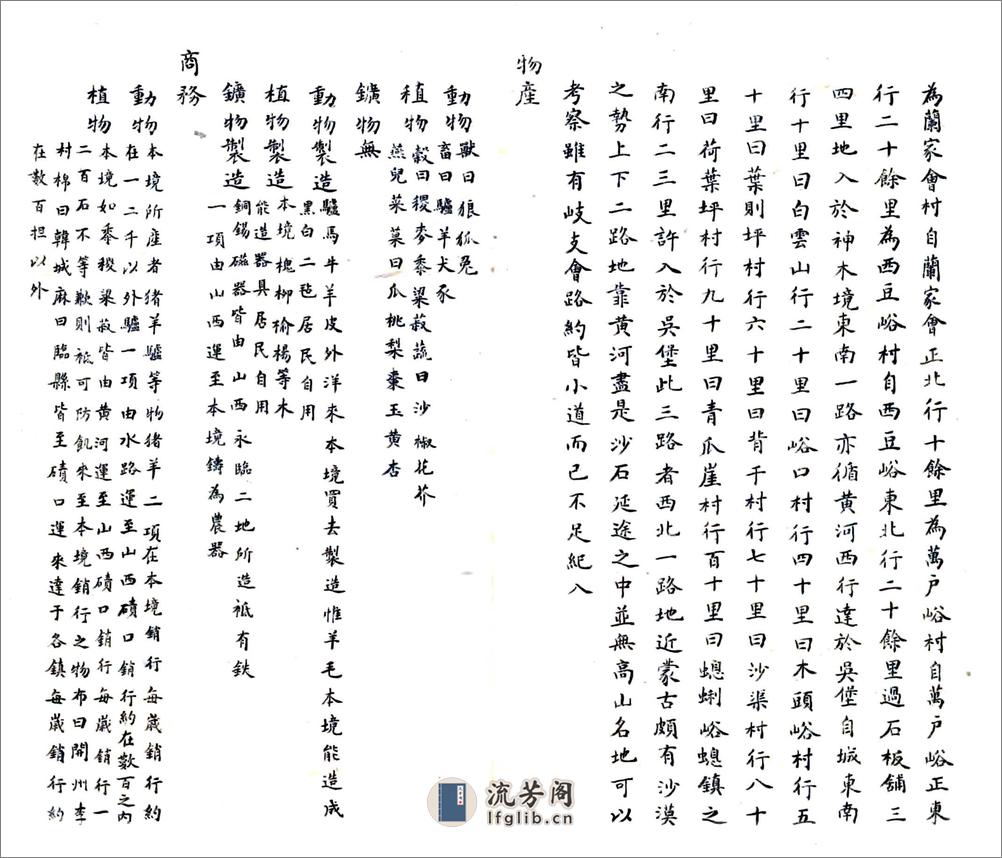 為蘭家會村自蘭家會正北行十餘里為萬戶峪村自萬戶峪正東
行二十餘里為西豆峪村自西豆峪東北行二十餘里過石板舖三
四里地入於神木境東南一路亦循黃河西行達於吳堡自城東南
行十里曰白雲山行二十里曰峪口村行四十里曰木頭峪村行五
十里曰葉則坪村行六十里曰背干村行七十里曰沙渠村行八十
里曰荷葉坪村行九十里曰青瓜崖村行百十里曰螅蜊峪螅鎮之
南行二三里許入於吳堡此三路者西北一路地近蒙古頗有沙漠
之勢上下二路地靠黃河盡是沙石延途之中並無高山名地可以
考察雖有岐支會路約皆小道而已不足紀入
物產
動物獸曰狼狐兔
畜曰驢羊犬豕
植物穀曰稷麥黍粱菽蔬曰沙椒花芥
燕兒菜菓曰瓜桃梨棗玉黃杏
鑛物無
動物製造驢馬牛羊皮外洋來本境買去製造惟羊毛本境能造成
黑白二毡居民自用
植物製造本境槐柳榆楊等木
能造器具居民自用
鑛物製造銅錫磁器皆由山西永臨二地所造祗有鉄
一項由山西運至本境鑄為農器
商務
動物本境所產者猪羊驢等物猪羊二項在本境銷行每歲銷行約
在一二千以外驢一項由水路運至山西磧口銷行約在數百之內
植物本境如黍稷粱菽皆由黃河運至山西磧口銷行每歲銷行一
二百石不等歉則祗可防飢來至本境銷行之物布曰開州李
村棉曰韓城麻曰臨縣皆至磧口運來達于各鎮每歲銷行約
在數百担以外
流芳阁
lfglib.cn